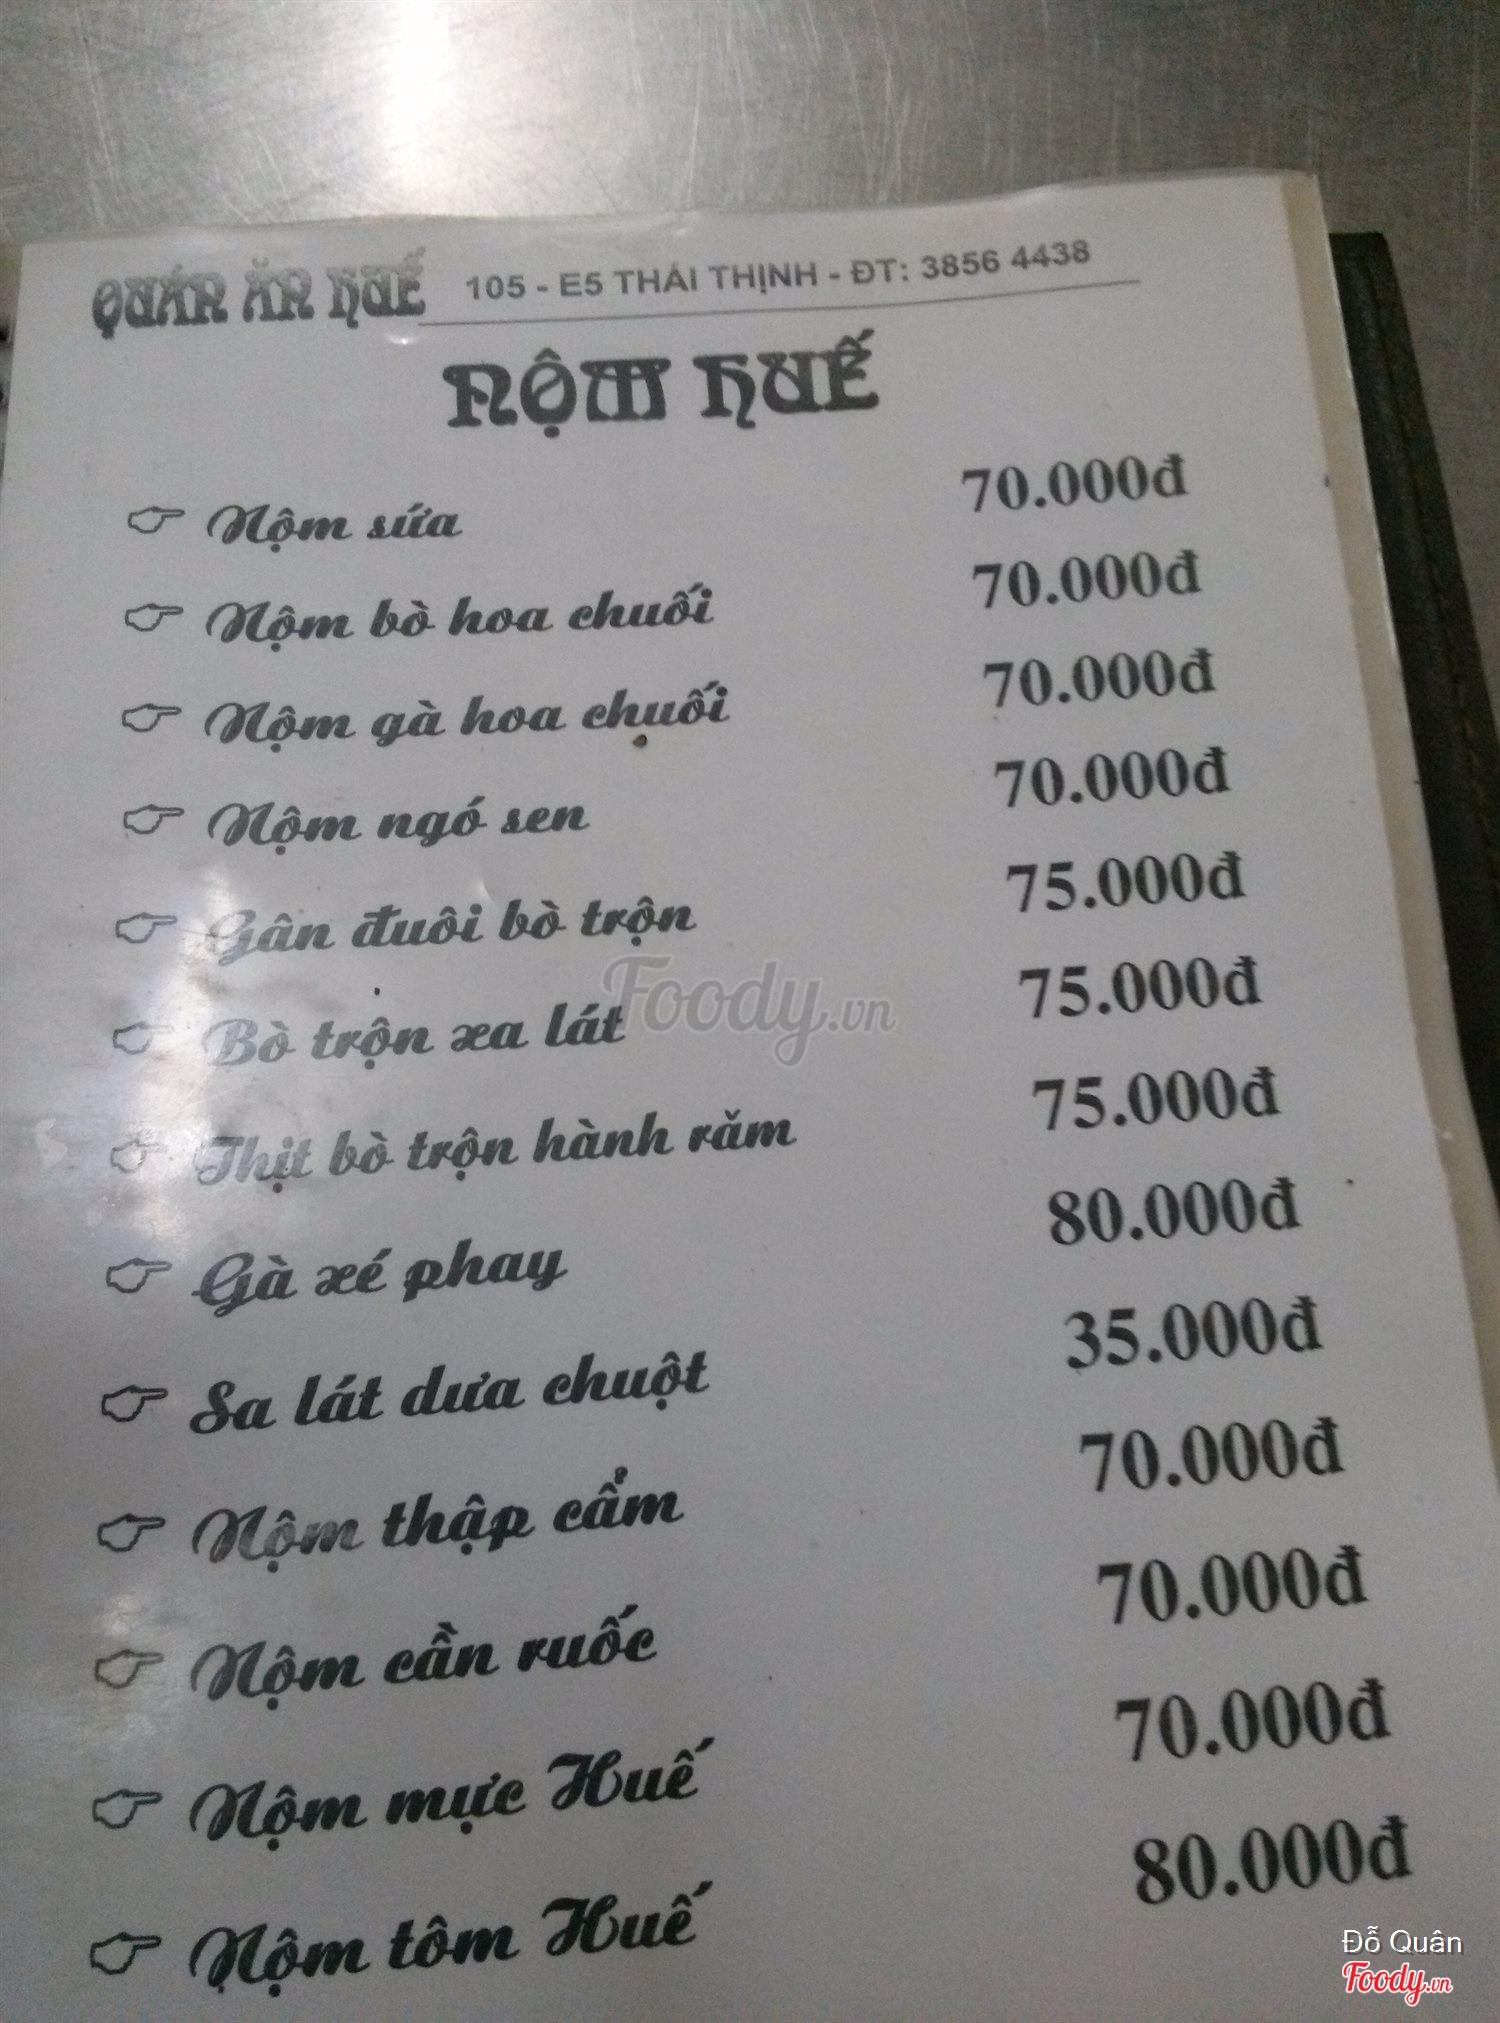 QUÁN ĂN HUẾ 105 - E5 THÁI THỊNH - ĐT: 3856 4438
NỘM HUẾ
Nộm sứa 70.000đ
Nộm bò hoa chuối 70.000đ
Nộm gà hoa chuối 70.000đ
Nộm ngó sen 70.000đ
Gân đuôi bò trộn 75.000đ
Bò trộn xa lát 75.000đ
Thịt bò trộn hành răm 75.000đ
Gà xé phay 80.000đ
Sa lát dưa chuột 35.000đ
Nộm thập cẩm 70.000đ
Nộm cần ruốc 70.000đ
Nộm mực Huế 70.000đ
Nộm tôm Huế 80.000đ
Foody.vn
Đỗ Quân
Foody.vn